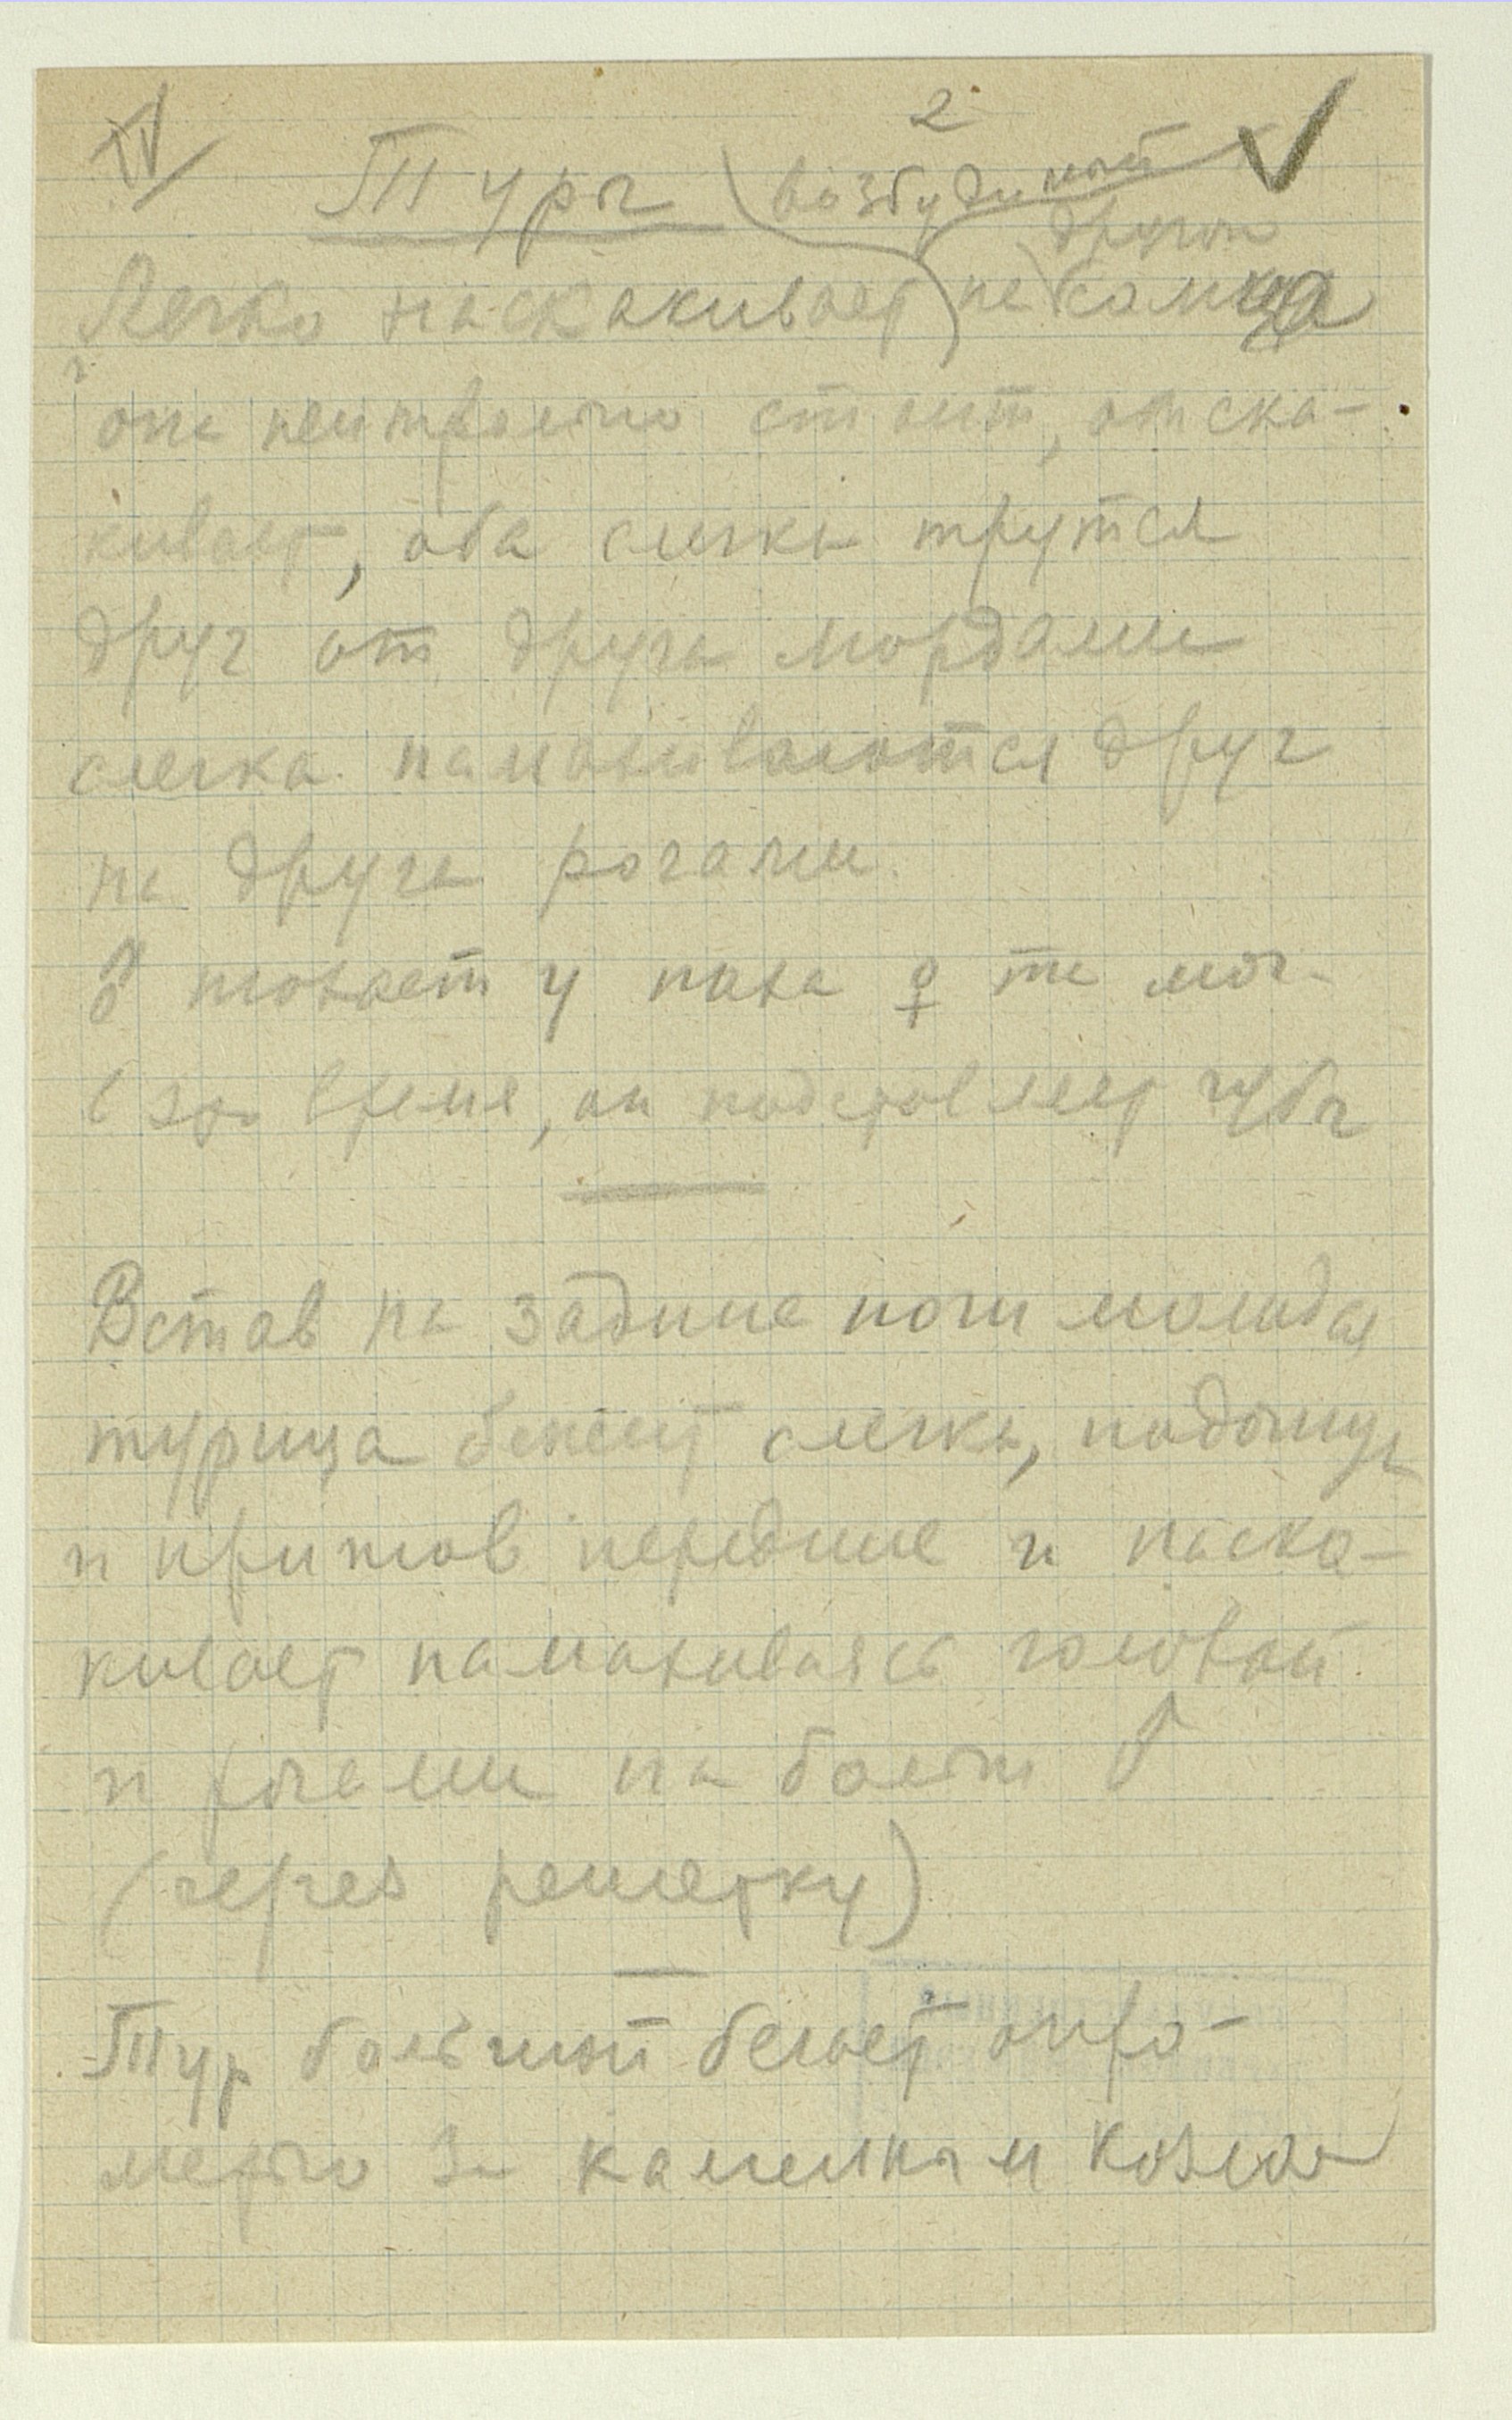 XV
2
Туры (возбудимый
другого
Легко наскакивает) не самца
она нейтрально стоит, отска-
кивает, оба слегка трутся
друг от друга мордами
слегка намахиваются друг
на друга рогами.
♂ нюхает у паха ♀ та моч.
в это время, он подставляет губы
Встав на задние ноги молодая
турица бежит слегка, подогнув
и прижав передние и наска-
кивает намахиваясь головой
и рогами на больш ♂
(через решетку)
Тур большой бегает опро-
метью за козлом